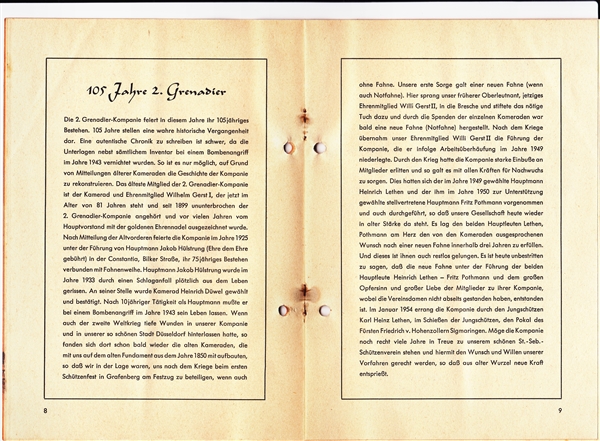 105 Jahre 2. Grenadier
Die 2. Grenadier-Kompanie feiert in diesem Jahre ihr 105jähriges
Bestehen. 105 Jahre stellen eine wahre historische Vergangenheit
dar. Eine autentische Chronik zu schreiben ist schwer, da die
Unterlagen nebst sämtlichem Inventar bei einem Bombenangriff
im Jahre 1943 vernichtet wurden. So ist es nur möglich, auf Grund
von Mitteilungen älterer Kameraden die Geschichte der Kompanie
zu rekonstruieren. Das älteste Mitglied der 2. Grenadier-Kompanie
ist der Kamerad und Ehrenmitglied Wilhelm Gerst I, der jetzt im
Alter von 81 Jahren steht und seit 1899 ununterbrochen der
2. Grenadier-Kompanie angehört und vor vielen Jahren vom
Hauptvorstand mit der goldenen Ehrennadel ausgezeichnet wurde.
Nach Mitteilung der Altvorderen feierte die Kompanie im Jahre 1925
unter der Führung von Hauptmann Jakob Hülstrung (Ehre dem Ehre
gebührt) in der Constantia, Bilker Straße, ihr 75jähriges Bestehen
verbunden mit Fahnenweihe. Hauptmann Jakob Hülstrung wurde im
Jahre 1933 durch einen Schlaganfall plötzlich aus dem Leben
gerissen. An seiner Stelle wurde Kamerad Heinrich Düwel gewählt
und bestätigt. Nach 10jähriger Tätigkeit als Hauptmann mußte er
bei einem Bombenangriff im Jahre 1943 sein Leben lassen. Wenn
auch der zweite Weltkrieg tiefe Wunden in unserer Kompanie
und in unserer so schönen Stadt Düsseldorf hinterlassen hatte, so
fanden sich dort schon bald wieder die alten Kameraden, die
mit uns auf dem alten Fundament aus dem Jahre 1850 mit aufbauten,
so daß wir in der Lage waren, uns nach dem Kriege beim ersten
Schützenfest in Grafenberg am Festzug zu beteiligen, wenn auch
8
ohne Fahne. Unsere erste Sorge galt einer neuen Fahne (wenn
auch Notfahne). Hier sprang unser früherer Oberleutnant, jetziges
Ehrenmitglied Willi Gerst II, in die Bresche und stiftete das nötige
Tuch dazu und durch die Spenden der einzelnen Kameraden war
bald eine neue Fahne (Notfahne) hergestellt. Nach dem Kriege
übernahm unser Ehrenmitglied Willi Gerst II die Führung der
Kompanie, die er infolge Arbeitsüberhäufung im Jahre 1949
niederlegte. Durch den Krieg hatte die Kompanie starke Einbuße an
Mitglieder erlitten und so galt es mit allen Kräften für Nachwuchs
zu sorgen. Dies hatten sich der im Jahre 1949 gewählte Hauptmann
Heinrich Lethen und der ihm im Jahre 1950 zur Unterstützung
gewählte stellvertretene Hauptmann Fritz Pothmann vorgenommen
und auch durchgeführt, so daß unsere Gesellschaft heute wieder
in alter Stärke da steht. Es lag den beiden Hauptleuten Lethen,
Pothmann am Herz den von den Kameraden ausgesprochenen
Wunsch nach einer neuen Fahne innerhalb drei Jahren zu erfüllen.
Und dieses ist ihnen auch restlos gelungen. Es ist heute unbestritten
zu sagen, daß die neue Fahne unter der Führung der beiden
Hauptleute Heinrich Lethen – Fritz Pothmann und dem großen
Opfersinn und großer Liebe der Mitglieder zu ihrer Kompanie,
wobei die Vereinsdamen nicht abseits gestanden haben, entstanden
ist. Im Januar 1954 errang die Kompanie durch den Jungschützen
Karl Heinz Lethen, im Schießen der Jungschützen, den Pokal des
Fürsten Friedrich v. Hohenzollern Sigmaringen. Möge die Kompanie
noch recht viele Jahre in Treue zu unserem schönen St.-Seb.-
Schützenverein stehen und hiermit den Wunsch und Willen unserer
Vorfahren gerecht werden, so daß aus alter Wurzel neue Kraft
entsprießt.
9